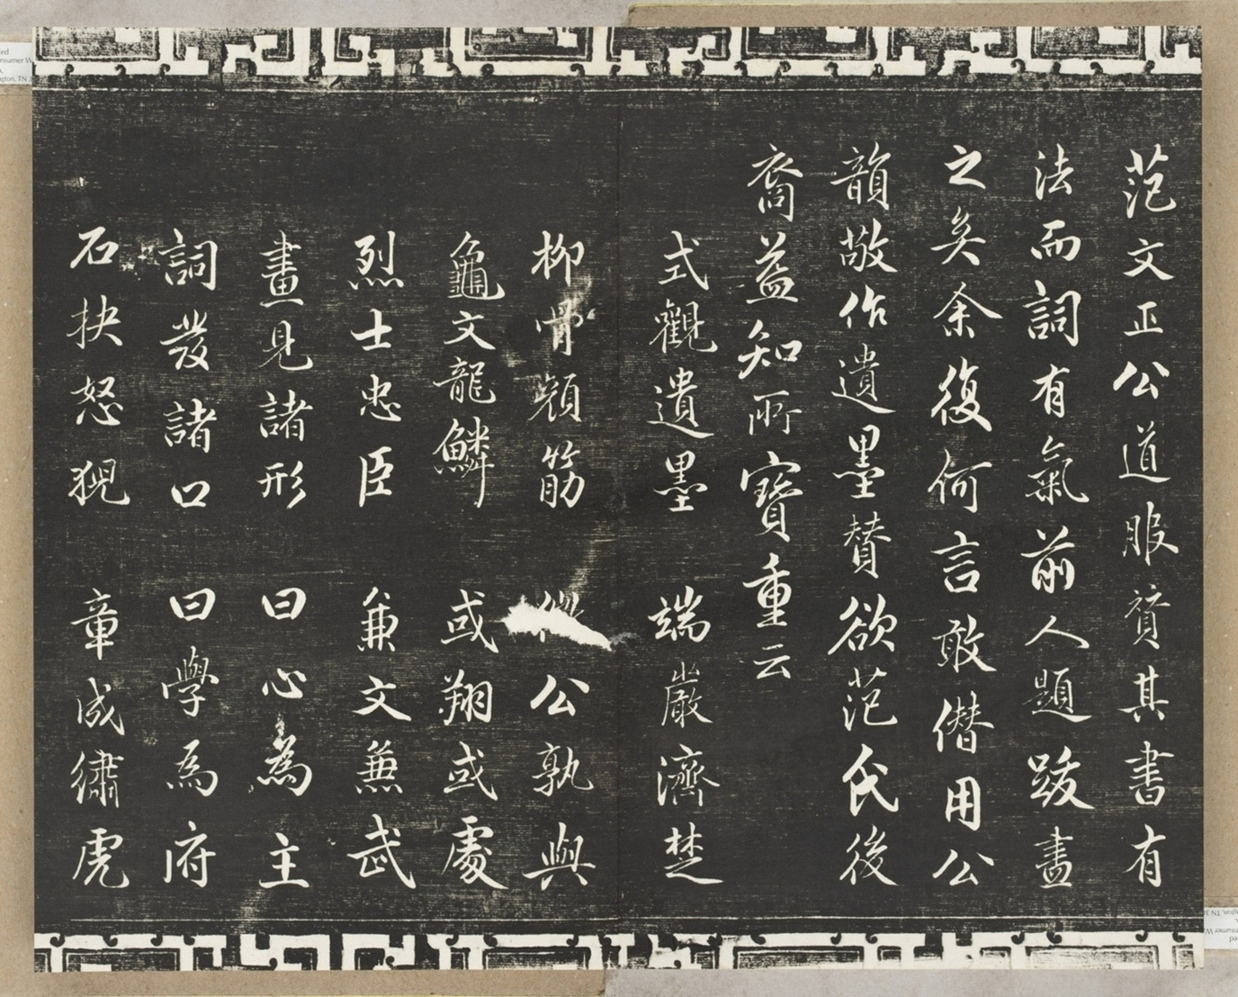 范文正公道服贊其書有
法而詞有氣前人題跋盡
之矣余復何言敢僭用公
韻敬作遺墨贊欲范氏後
裔益知所寶重云
式觀遺墨 端嚴濟楚
柳骨顏筋 公孰與
龜文龍鱗 或翔或處
烈士忠臣 兼文兼武
畫見諸形 曰心為主
詞發諸口 曰學為府
石抉怒猊 章成繡虎